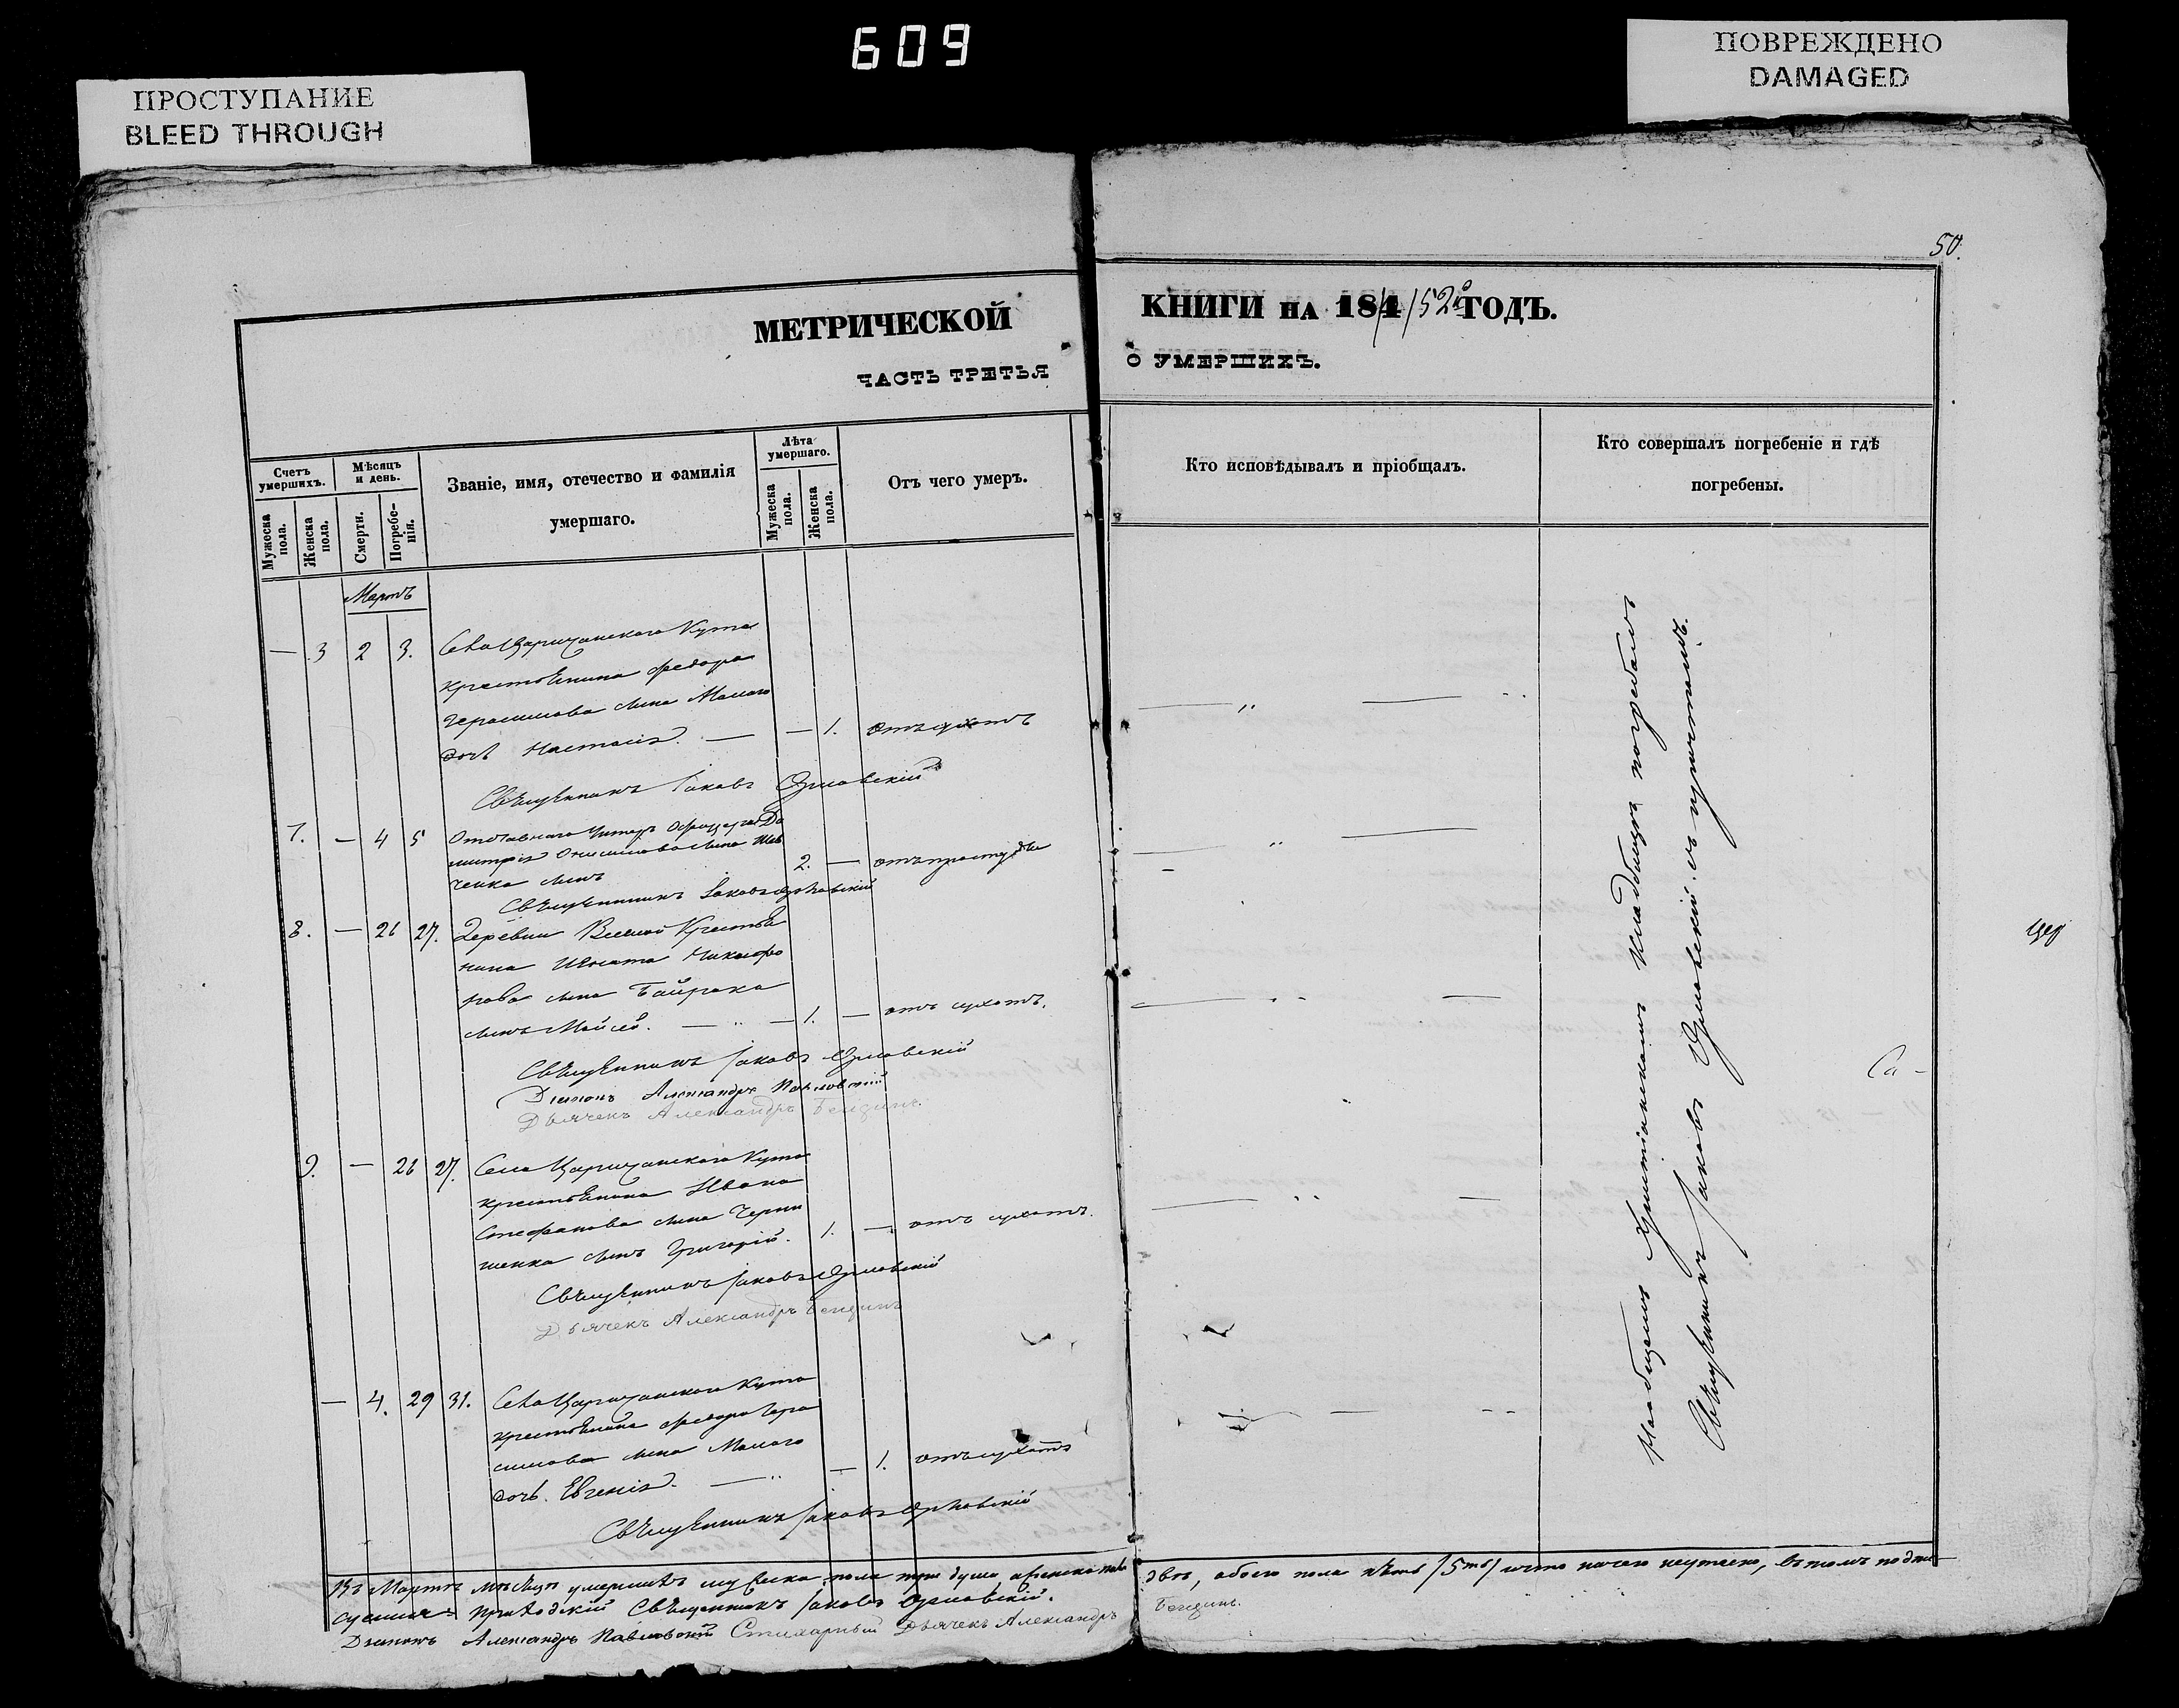 609
ПРОСТУПАНИЕ
BLEED THROUGH
ПОВРЕЖДЕНО
DAMAGED
50.
МЕТРИЧЕСКОЙ
ЧАСТЬ ТРЕТЬЯ
КНИГИ НА 184/52й ГОДЪ.
О УМЕРШИХЪ.
Счетъ умершихъ.
Мужеска пола.
Женска пола.
Мѣсяцъ и день.
Смерти.
Погребенія.
Званіе, имя, отечество и фамилія
умершаго.
Лѣта умершаго.
Мужеска пола.
Женска пола.
Отъ чего умеръ.
Кто исповѣдывалъ и пріобщалъ.
Кто совершалъ погребеніе и гдѣ
погребены.
Мартъ
— 3 2 3. Села Царичанского Кута
крестьянина Федора
Герасимова сына Малаго
дочь Настасія. — — 1. отъ сухотъ
Священникъ Іаковъ Орловскій
7. — 4 5 Отставнаго Унтеръ Офицера Ди
митрія Онисимова сына Шев
ченка сынъ 2. — отъ простуды
Священникъ Іаковъ Орловскій
8. — 26 27. Деревни крестья
нина Игната Никифо
рова сына Байрака
сынъ Мойсей. — 1. — отъ сухотъ.
Священникъ Іаковъ Орловскій
Дьяконъ Александръ Павловскій
Дьячекъ Александръ Бендинъ.
9. — 26 27. Села Царичанского Кута
крестьянина Ивана
Стефанова сына Черни
шенка сынъ Григорій. 1. — отъ сухотъ.
Священникъ Іаковъ Орловскій
Дьячекъ Александръ Бендинъ
— 4. 29 31. Села Царичанского Кута
крестьянина Федора Гера
симова сына Малаго
дочь Евгенія. — — 1. отъ сухотъ
Священникъ Іаковъ Орловскій
На общемъ Христіанскомъ кладбищѣ погребалъ
Священникъ Іаковъ Орловскій съ причтомъ.
Са -
Въ Мартѣ мѣсяцѣ умершихъ мужеска пола три души женска пола двѣ, обоего пола пять /5ть/ что ничего неутаено, въ томъ подпи
суемся: приходскій Священникъ Іаковъ Орловскій.
Дьяконъ Александръ Павловскій Стихарный Дьячекъ Александръ Бендинъ.